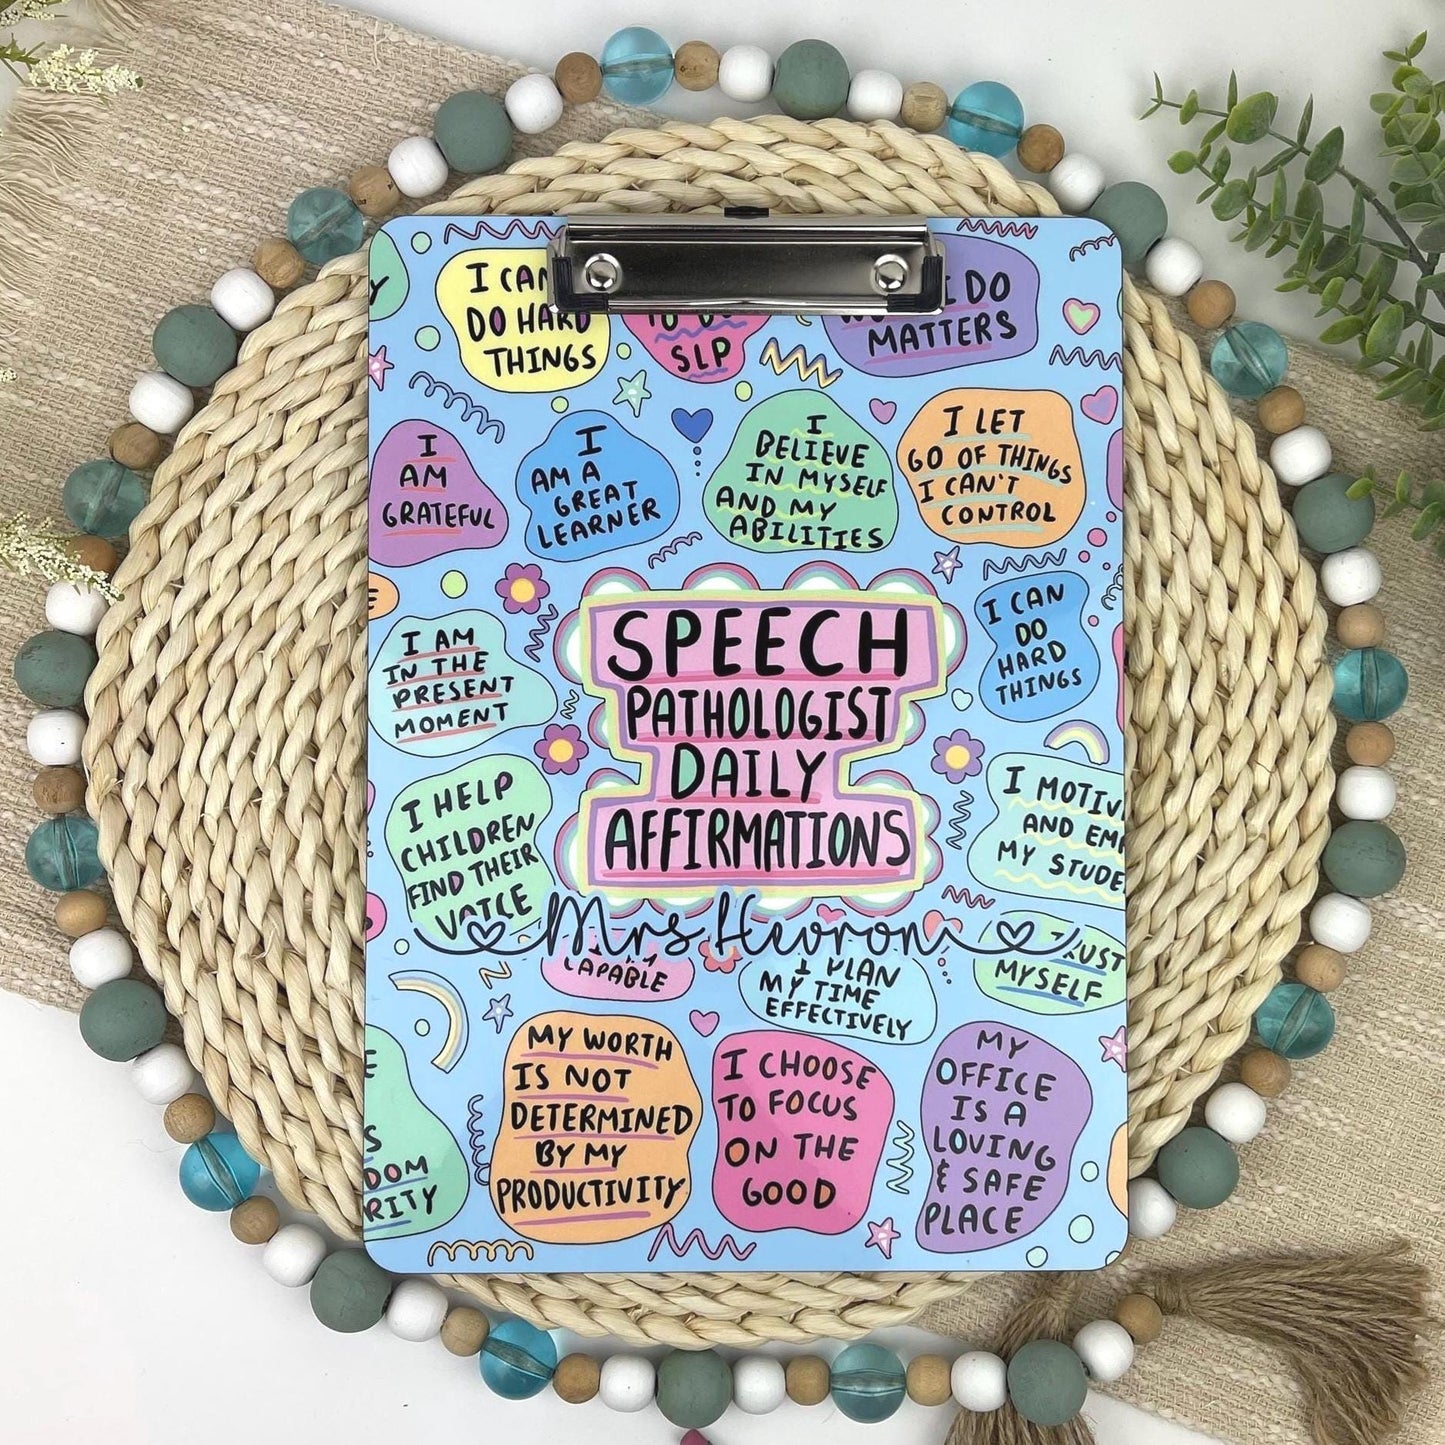 I CAN
DO HARD
THINGS
TO
SLP
I DO
MATTERS
I
AM
GRATEFUL
I
AM A
GREAT
LEARNER
I
BELIEVE
IN MYSELF
AND MY
ABILITIES
I LET
GO OF THINGS
I CAN'T
CONTROL
I AM
IN THE
PRESENT
MOMENT
SPEECH
PATHOLOGIST
DAILY
AFFIRMATIONS
I CAN
DO
HARD
THINGS
I HELP
CHILDREN
FIND THEIR
VOICE
I
AND
MY
Mrs Hevron
CAPABLE
I PLAN
MY TIME
EFFECTIVELY
MYSELF
MY WORTH
IS NOT
DETERMINED
BY MY
PRODUCTIVITY
I CHOOSE
TO FOCUS
ON THE
GOOD
MY
OFFICE
IS A
LOVING
& SAFE
PLACE